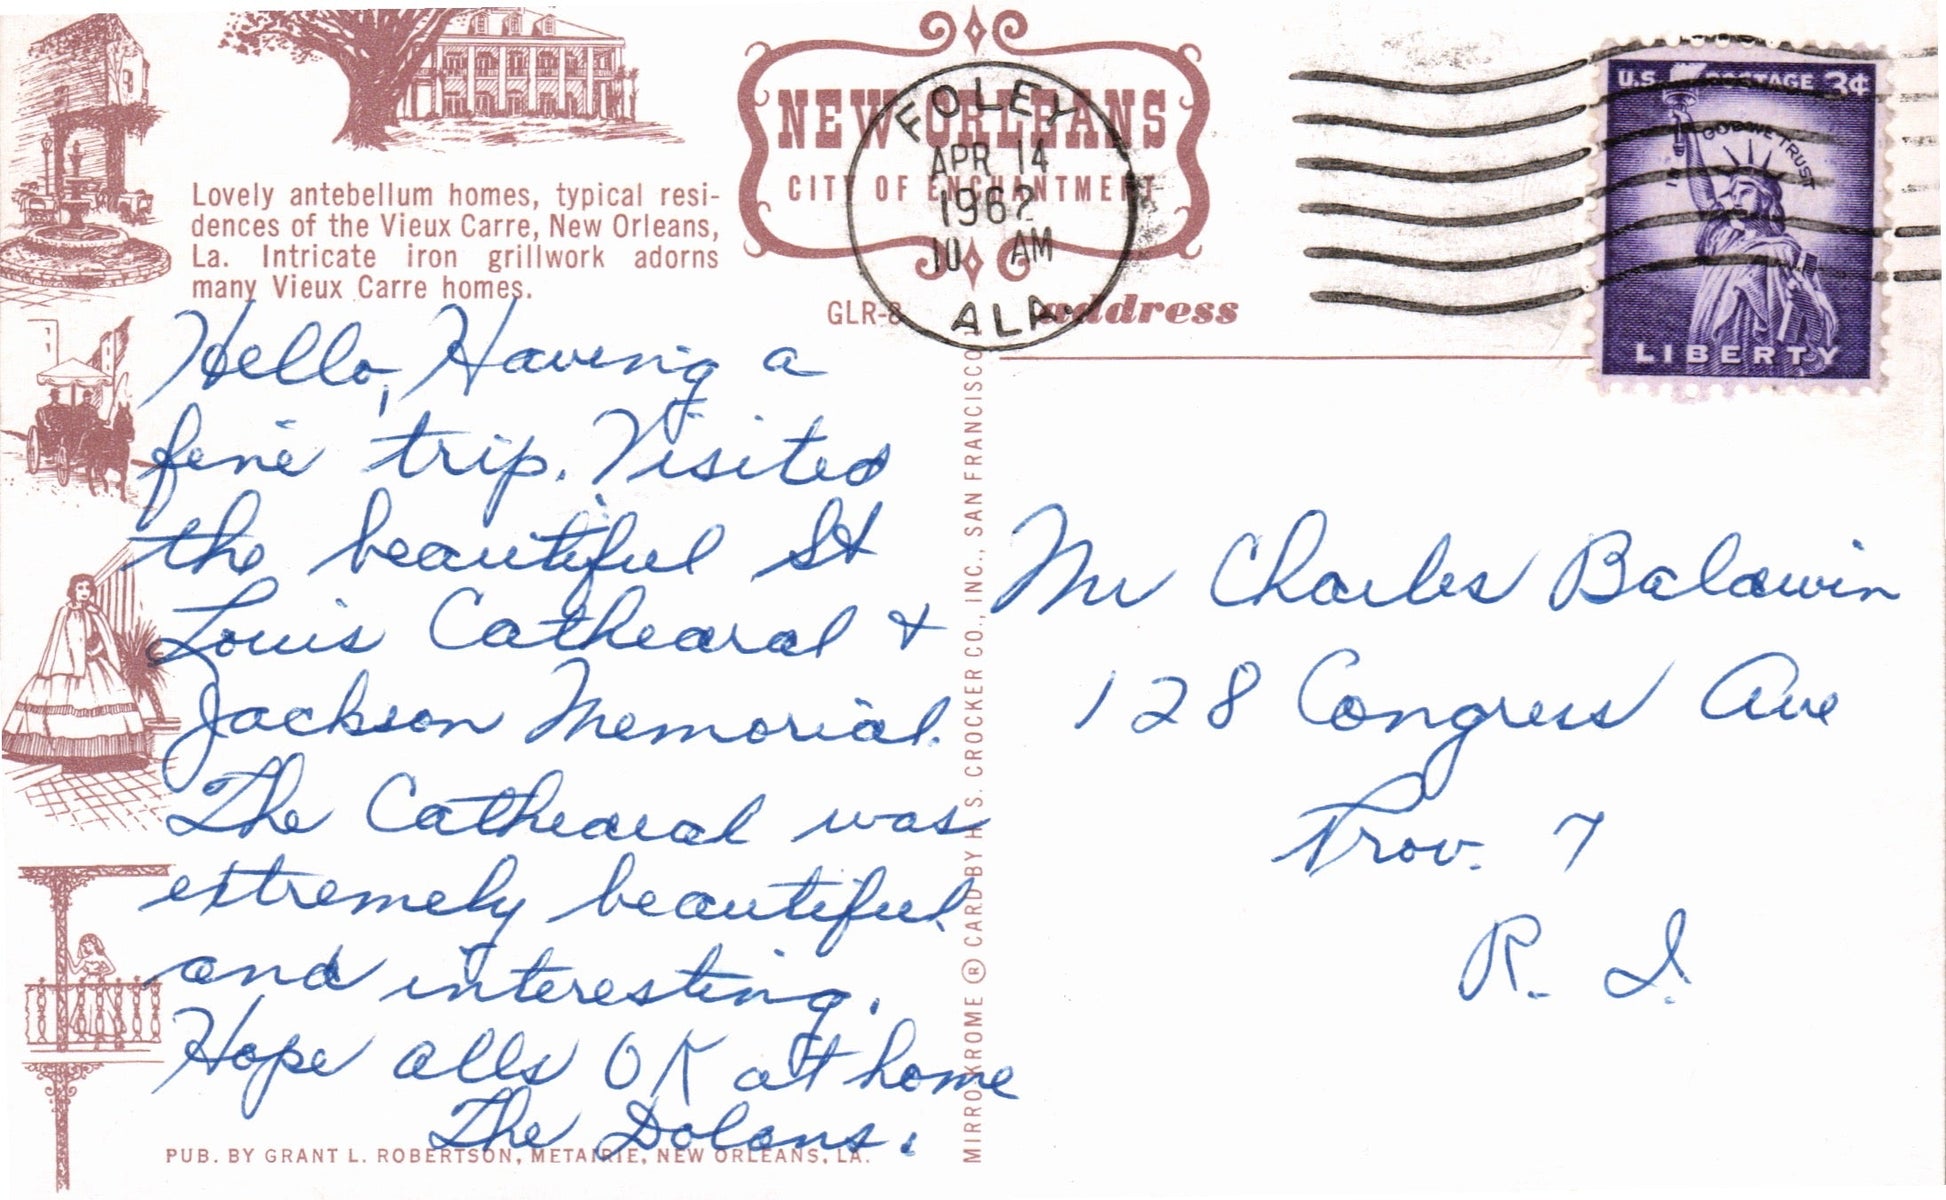 Lovely antebellum homes, typical resi-
dences of the Vieux Carre, New Orleans,
La. Intricate iron grillwork adorns
many Vieux Carre homes.
NEW ORLEANS
CITY OF ENCHANTMENT
FOLEY
APR 14
1962
10 AM
ALA.
GLR-8
address
U.S. POSTAGE 3¢
IN GOD WE TRUST
LIBERTY
Hello, Having a
fine trip. Visited
the beautiful St
Louis Cathedral &
Jackson Memorial.
The Cathedral was
extremely beautiful
and interesting.
Hope alls OK at home
The Dolans.
PUB. BY GRANT L. ROBERTSON, METAIRIE, NEW ORLEANS, LA.
MIRRO-KROME ® CARD BY H. S. CROCKER CO., INC., SAN FRANCISCO
Mr Charles Baldwin
128 Congress Ave
Prov. 7
R. I.